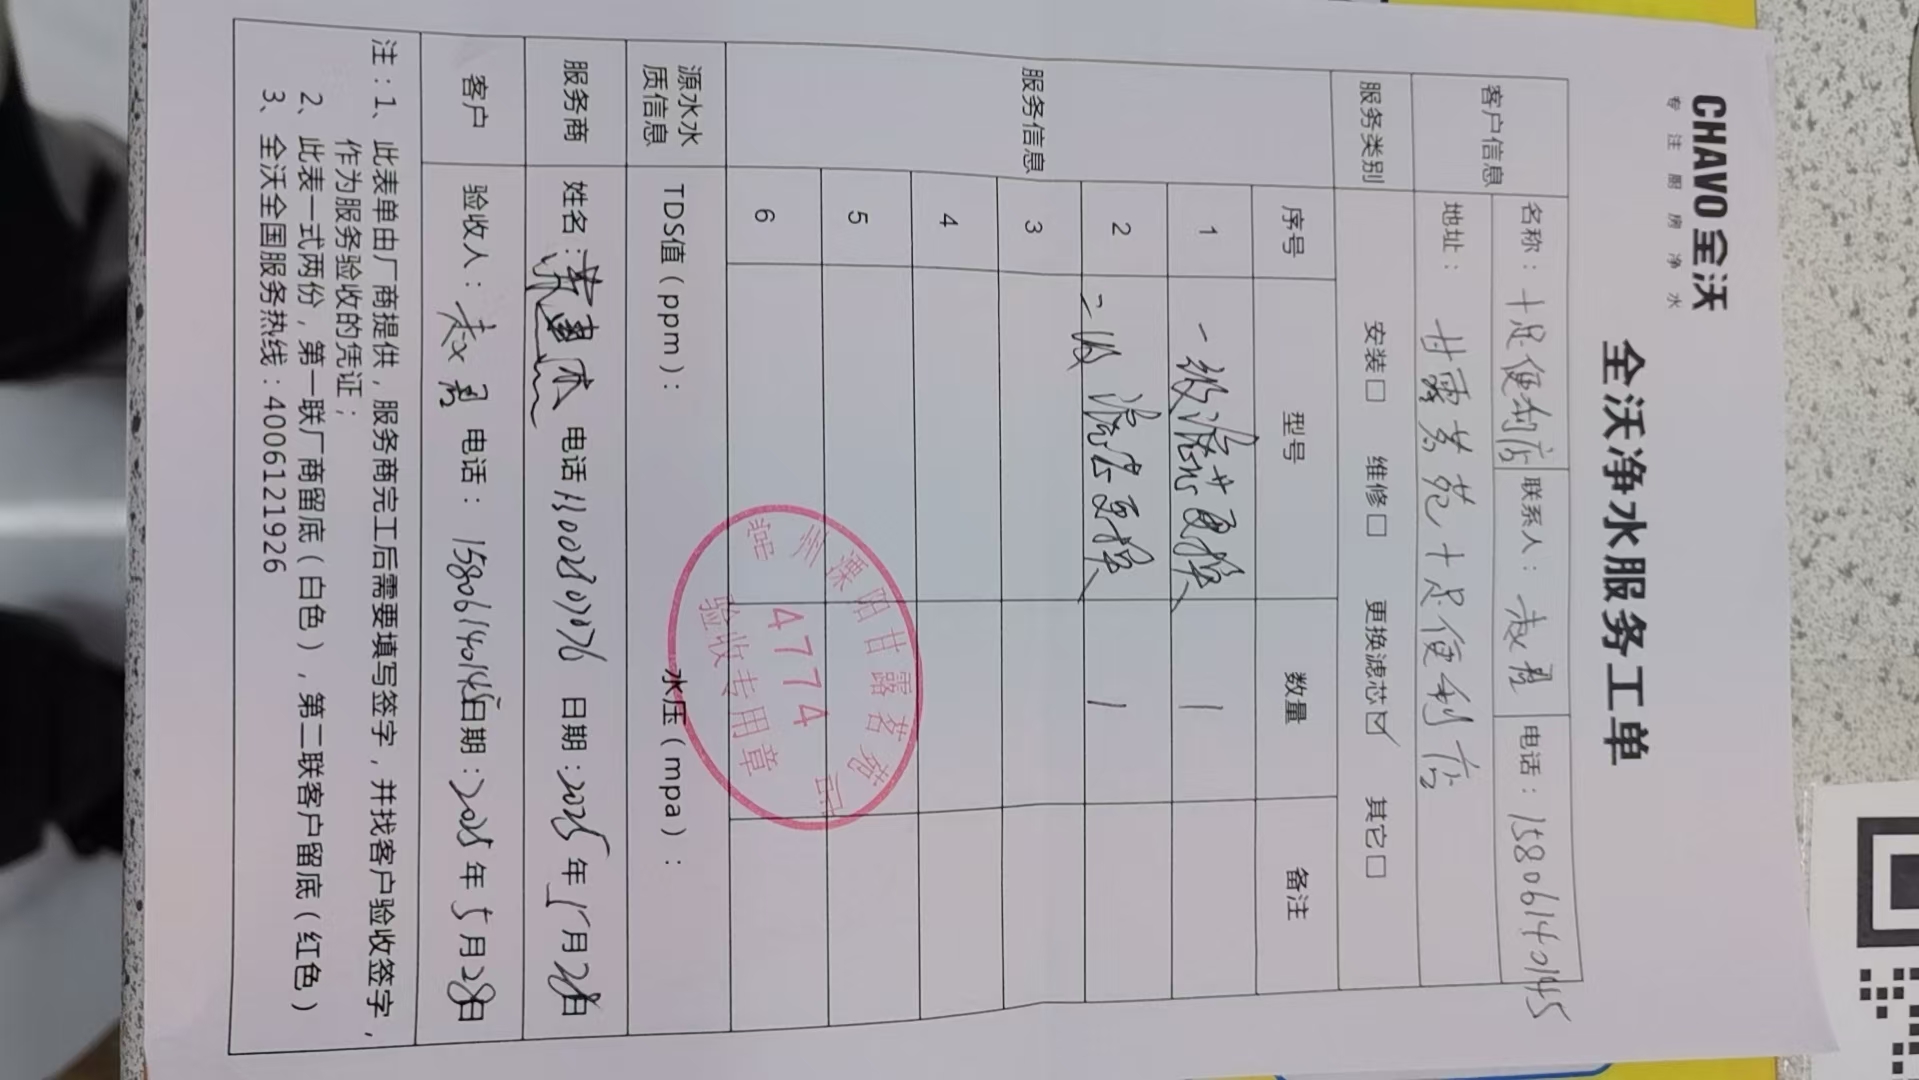 CHAVO 全沃
专注厨房净水
全沃净水服务工单
客户信息 名称：十足便利店 联系人：赵勇 电话：15806140145
地址：甘露茗苑十足便利店
服务类别 安装□ 维修□ 更换滤芯☑ 其它□
服务信息 序号 型号 数量 备注
1 一级滤芯更换 1
2 二级滤芯更换 1
3
4
5
6
常州溧阳甘露茗苑店
4774
验收专用章
源水水质信息 TDS值（ppm）： 水压（mpa）：
服务商 姓名： 电话 日期：2025年5月28日
客户 验收人：赵勇 电话：15806140145 日期：2025年5月28日
注：1、此表单由厂商提供，服务商完工后需要填写签字，并找客户验收签字，
作为服务验收的凭证；
2、此表一式两份，第一联厂商留底（白色），第二联客户留底（红色）
3、全沃全国服务热线：4006121926